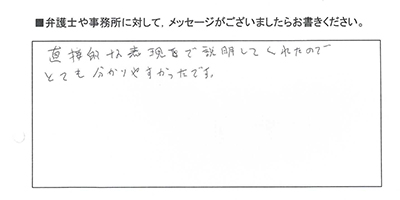 ■弁護士や事務所に対して，メッセージがございましたらお書きください。
直接的な表現で説明してくれたので
とても分かりやすかったです。